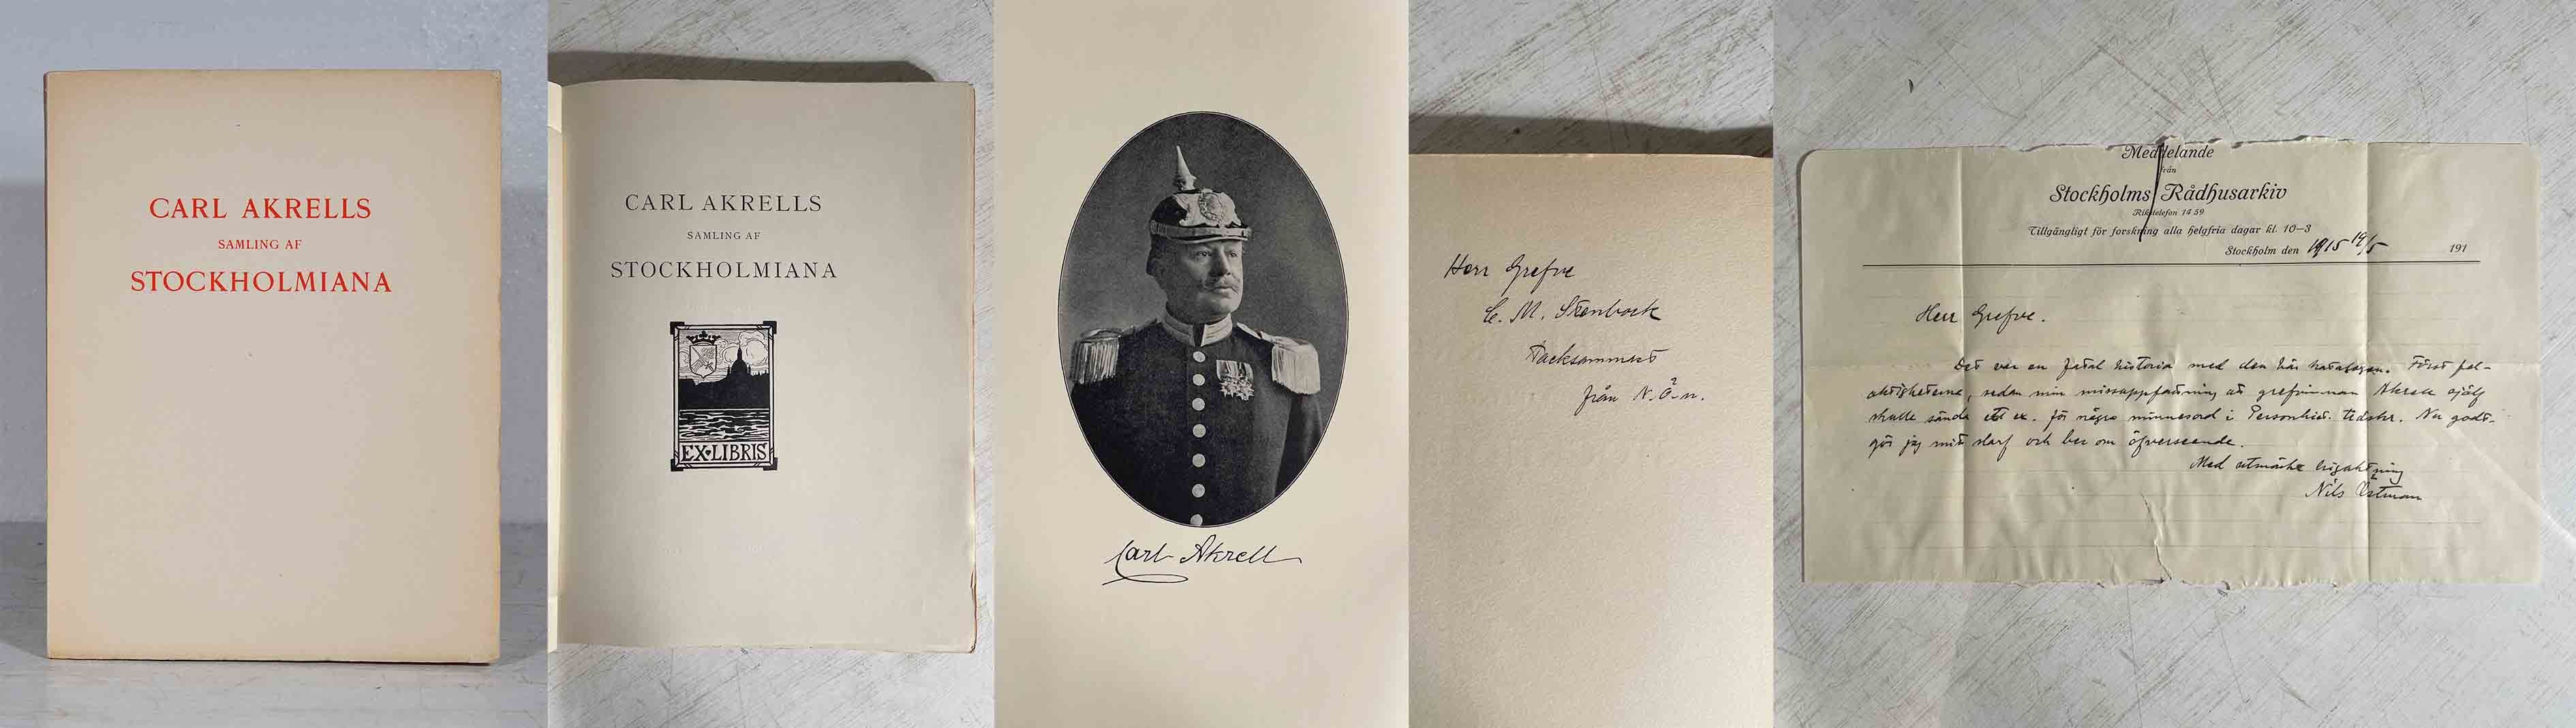 CARL AKRELLS
SAMLING AF
STOCKHOLMIANA
CARL AKRELLS
SAMLING AF
STOCKHOLMIANA
EX LIBRIS
Carl Akrell
Herr Grefve
C. M. Stenbock
Tacksammast
från N. Ö-n.
Meddelande
från
Stockholms Rådhusarkiv
Rikstelefon 14 59
Tillgängligt för forskning alla helgfria dagar kl. 10-3
Stockholm den 1915 19/5 191
Herr Grefve.
Det var en fatal historia med den här katalogen. Först fel-
aktigheterna, sedan min missuppfattning att grefvinnan Akrell själf
skulle sända ett ex. för några minnesord i Personhist. tidskr. Nu godt-
gör jag mitt slarf och ber om öfverseende.
Med utmärkt högaktning
Nils Östman